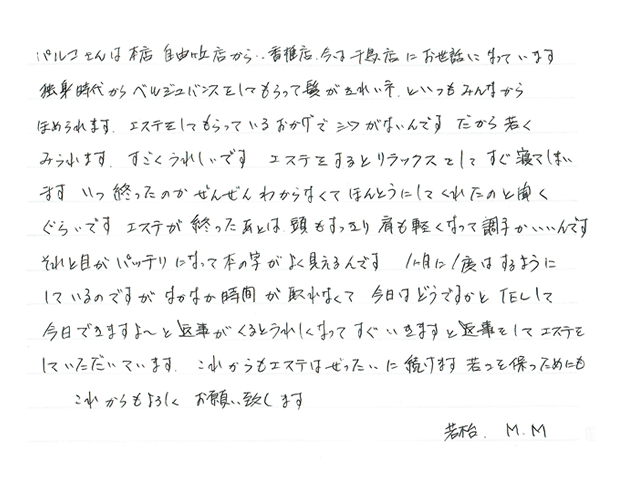 パルコさんは本店 自由ヶ丘店から‥香椎店、今は千鳥店にお世話になっています
独身時代からベルジュバンスをしてもらって髪がきれいネ、といつもみんなから
ほめられます。エステをしてもらっているおかげでシワがないんです だから若く
みられます。すごくうれしいです エステをするとリラックスをしてすぐ寝てしまい
ます いつ終ったのかぜんぜんわからなくてほんとうにしてくれたのと聞く
ぐらいです エステが終ったあとは、頭もすっきり 肩も軽くなって調子がいいんです
それと目がパッチリになって本の字がよく見えるんです 1ヶ月に1度はするように
しているのですがなかなか時間が取れなくて 今日はどうですかとTELして
今日できますよ〜と返事がくるとうれしくなってすぐいきますと返事をしてエステを
していただいています。これからもエステはぜったいに続けます 若さを保つためにも
これからもよろしく お願い致します
若杉。M.M